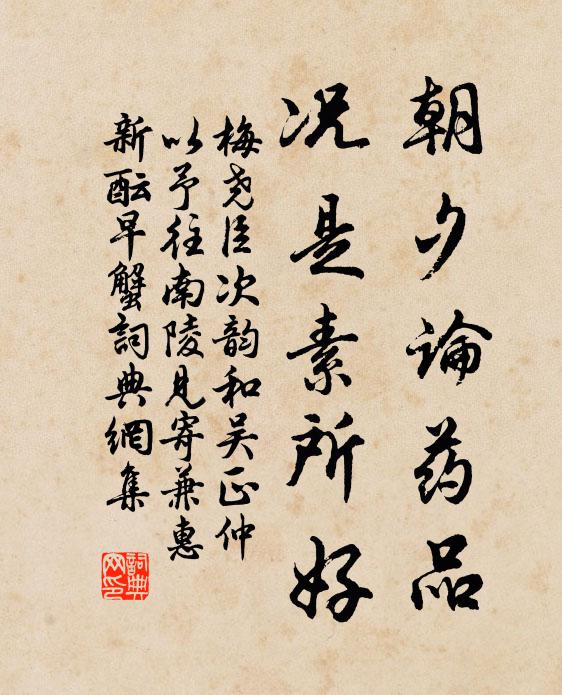 朝夕论药品
况是素所好
梅尧臣次韵和吴正仲
以予往南陵见寄兼惠
新酝早蟹詞典網集
詞典
网印